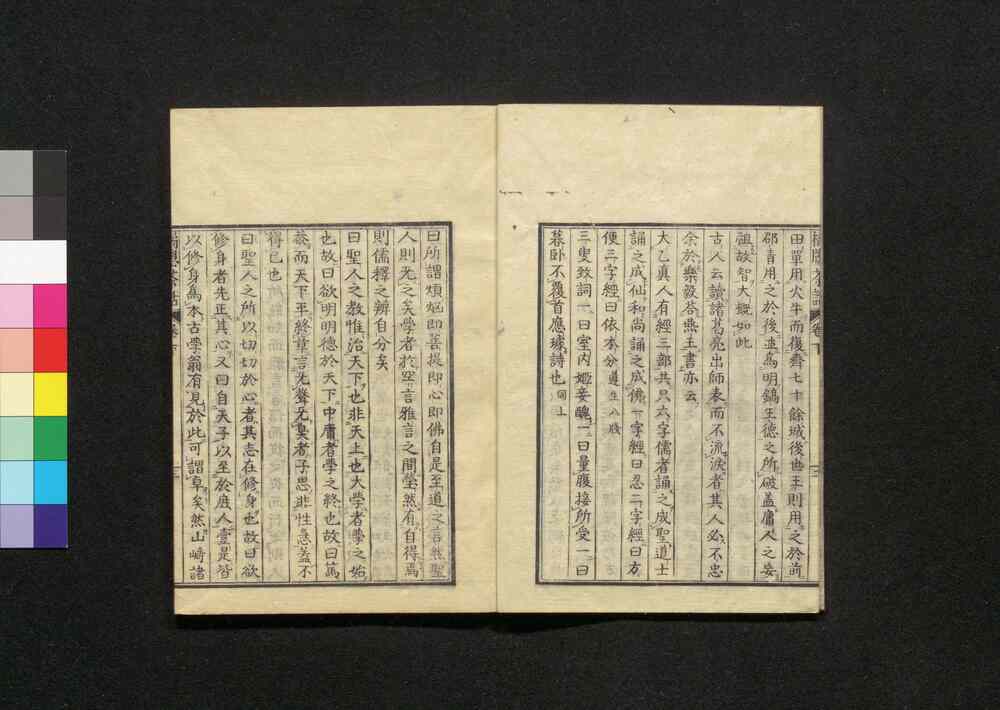 田單用火牛而復齊七十餘城後世王則用之於前
邵青用之於後並爲明鎬王德之所破蓋庸人之妄
詛故智大概如此
古人云讀諸葛亮出師表而不流淚者其人必不忠
余於樂毅答燕王書亦云
大乙真人有經三部共只六字儒者誦之成聖道士
誦之成仙和尚誦之成佛一字經曰忍二字經曰方
便三字經曰依本分遵生八牋
三叟致詞一曰室内姬妾醜一曰量腹接所受一曰
暮卧不覆首應璩詩也同上
曰所謂煩惱即菩提即心即佛自是至道之言然聖
人則无之矣學者於空言雅言之間瑩然有自得焉
則儒擇之辨自分矣
曰聖人之教惟治天下也非天上也大學者學之始
也故曰欲明明德於天下中庸者學之終也故曰篤
恭而天下平終章言无聲无臭者子思非性急蓋不
得已也
曰聖人之所以切切於心者其志在修身也故曰欲
修身者先正其心又曰自天子以至於庶人壹是皆
以修身爲本古學翁有見於此可謂卓矣然山崎諸